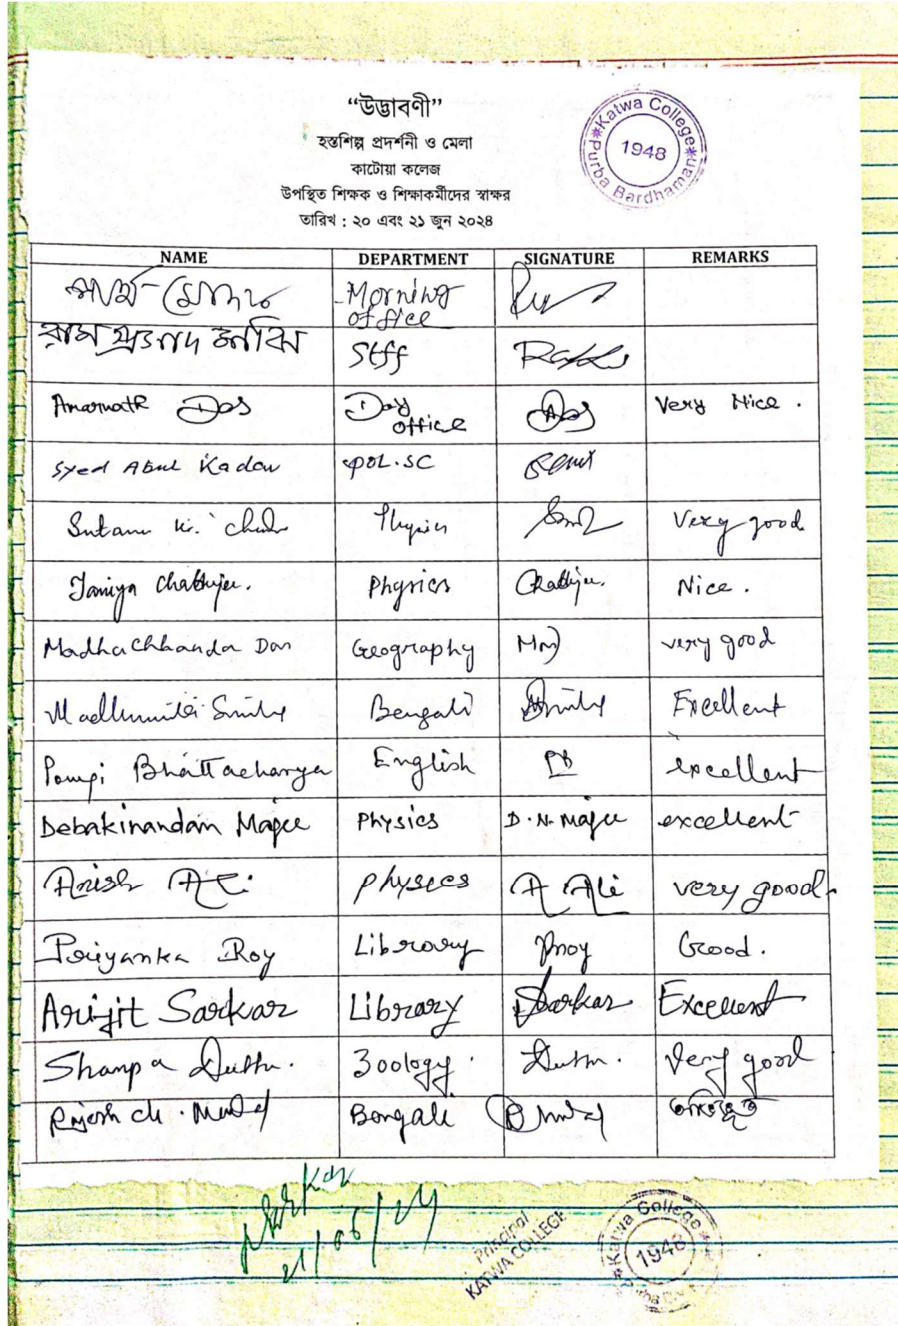 “উদ্ভাবণী”
হস্তশিল্প প্রদর্শনী ও মেলা
কাটোয়া কলেজ
উপস্থিত শিক্ষক ও শিক্ষাকর্মীদের স্বাক্ষর
তারিখ : ২০ এবং ২১ জুন ২০২৪
Katwa College
1948
Purba Bardhaman
NAME DEPARTMENT SIGNATURE REMARKS
Morning
office
Staff
Amarnath Das Day Das Very Nice .
office
Syed Abul Kadar POL.SC
Sutanu Kr. Physics Very good
Taniya Chatterjee. Physics Chatterjee. Nice .
Madhuchhanda Das Geography very good
Bengali Excellent
Pampi Bhattacharya English PB excellent
Debakinandan Majee Physics D. N. Majee excellent
Anish Ali physics A Ali very good.
Priyanka Roy Library Proy Good.
Arijit Sarkar Library Sarkar Excellent
Shampa Dutta. Zoology. Dutta. Very good
Rajesh ch. Bengali
21/06/24
Principal
KATWA COLLEGE
Katwa College
1948